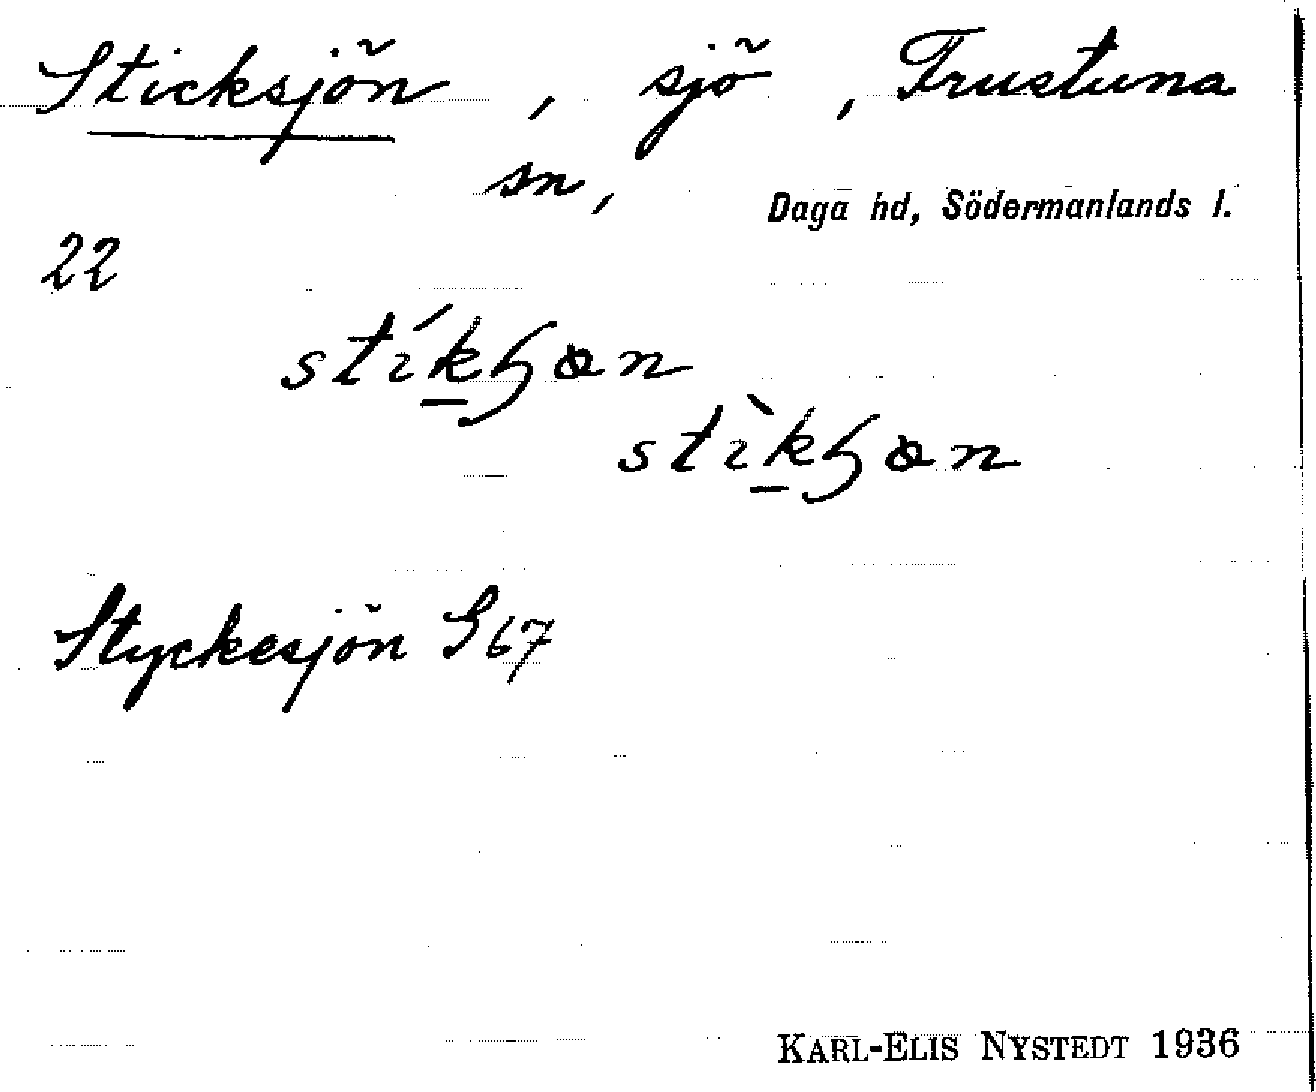 Sticksjön, sjö, Frustuna
sn, Daga hd, Södermanlands l.
22
Styckesjön G 67
KARL-ELIS NYSTEDT 1936